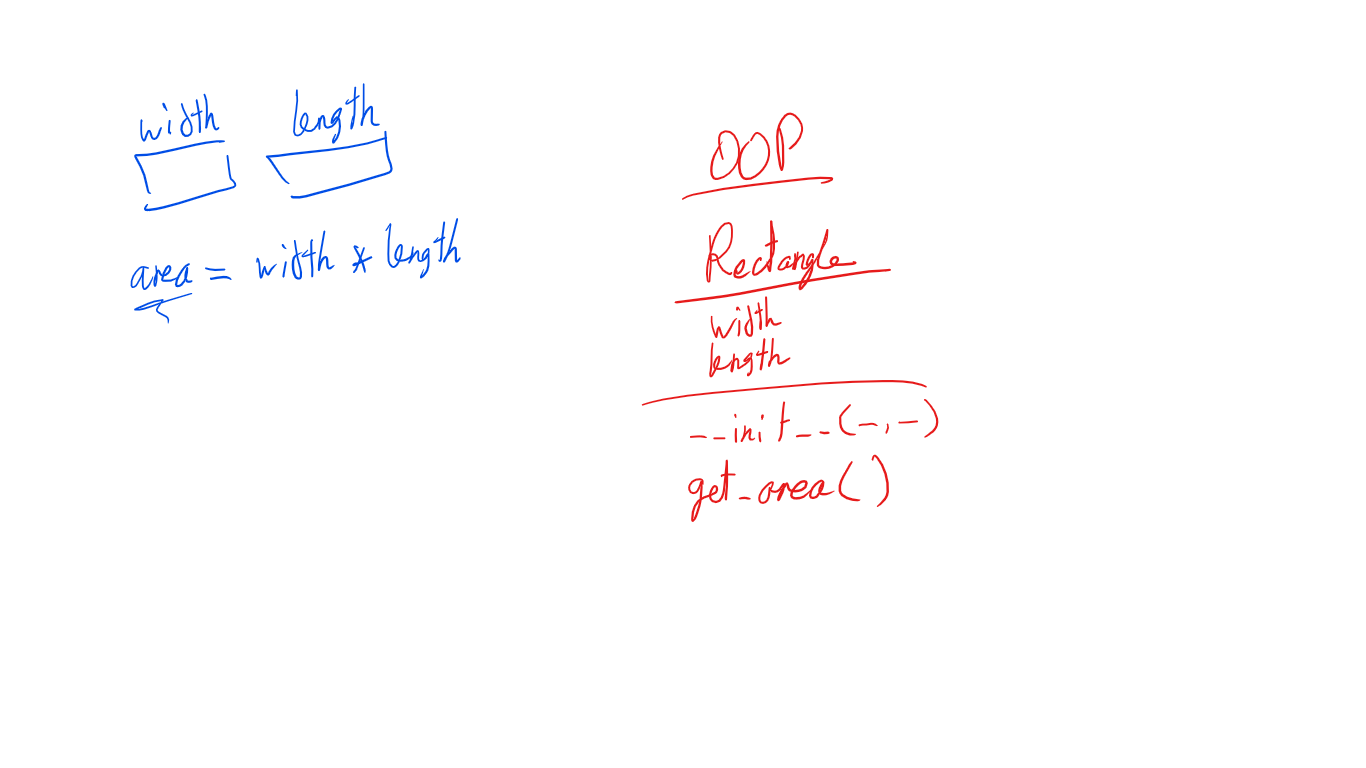 width length
area = width * length
OOP
Rectangle
width
length
__init__(_,_)
get_area()